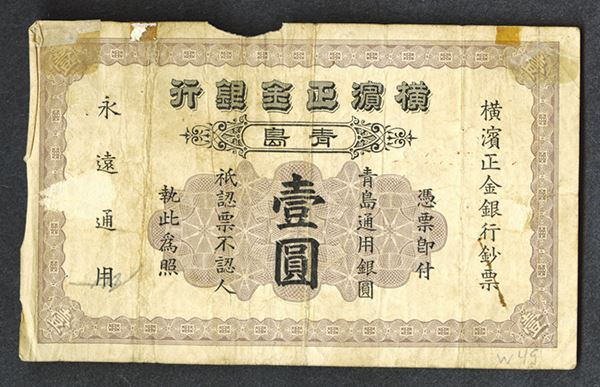 橫濱正金銀行
青島
橫濱正金銀行鈔票
憑票即付
青島通用銀圓
壹圓
祇認票不認人
執此為照
永遠通用
W45